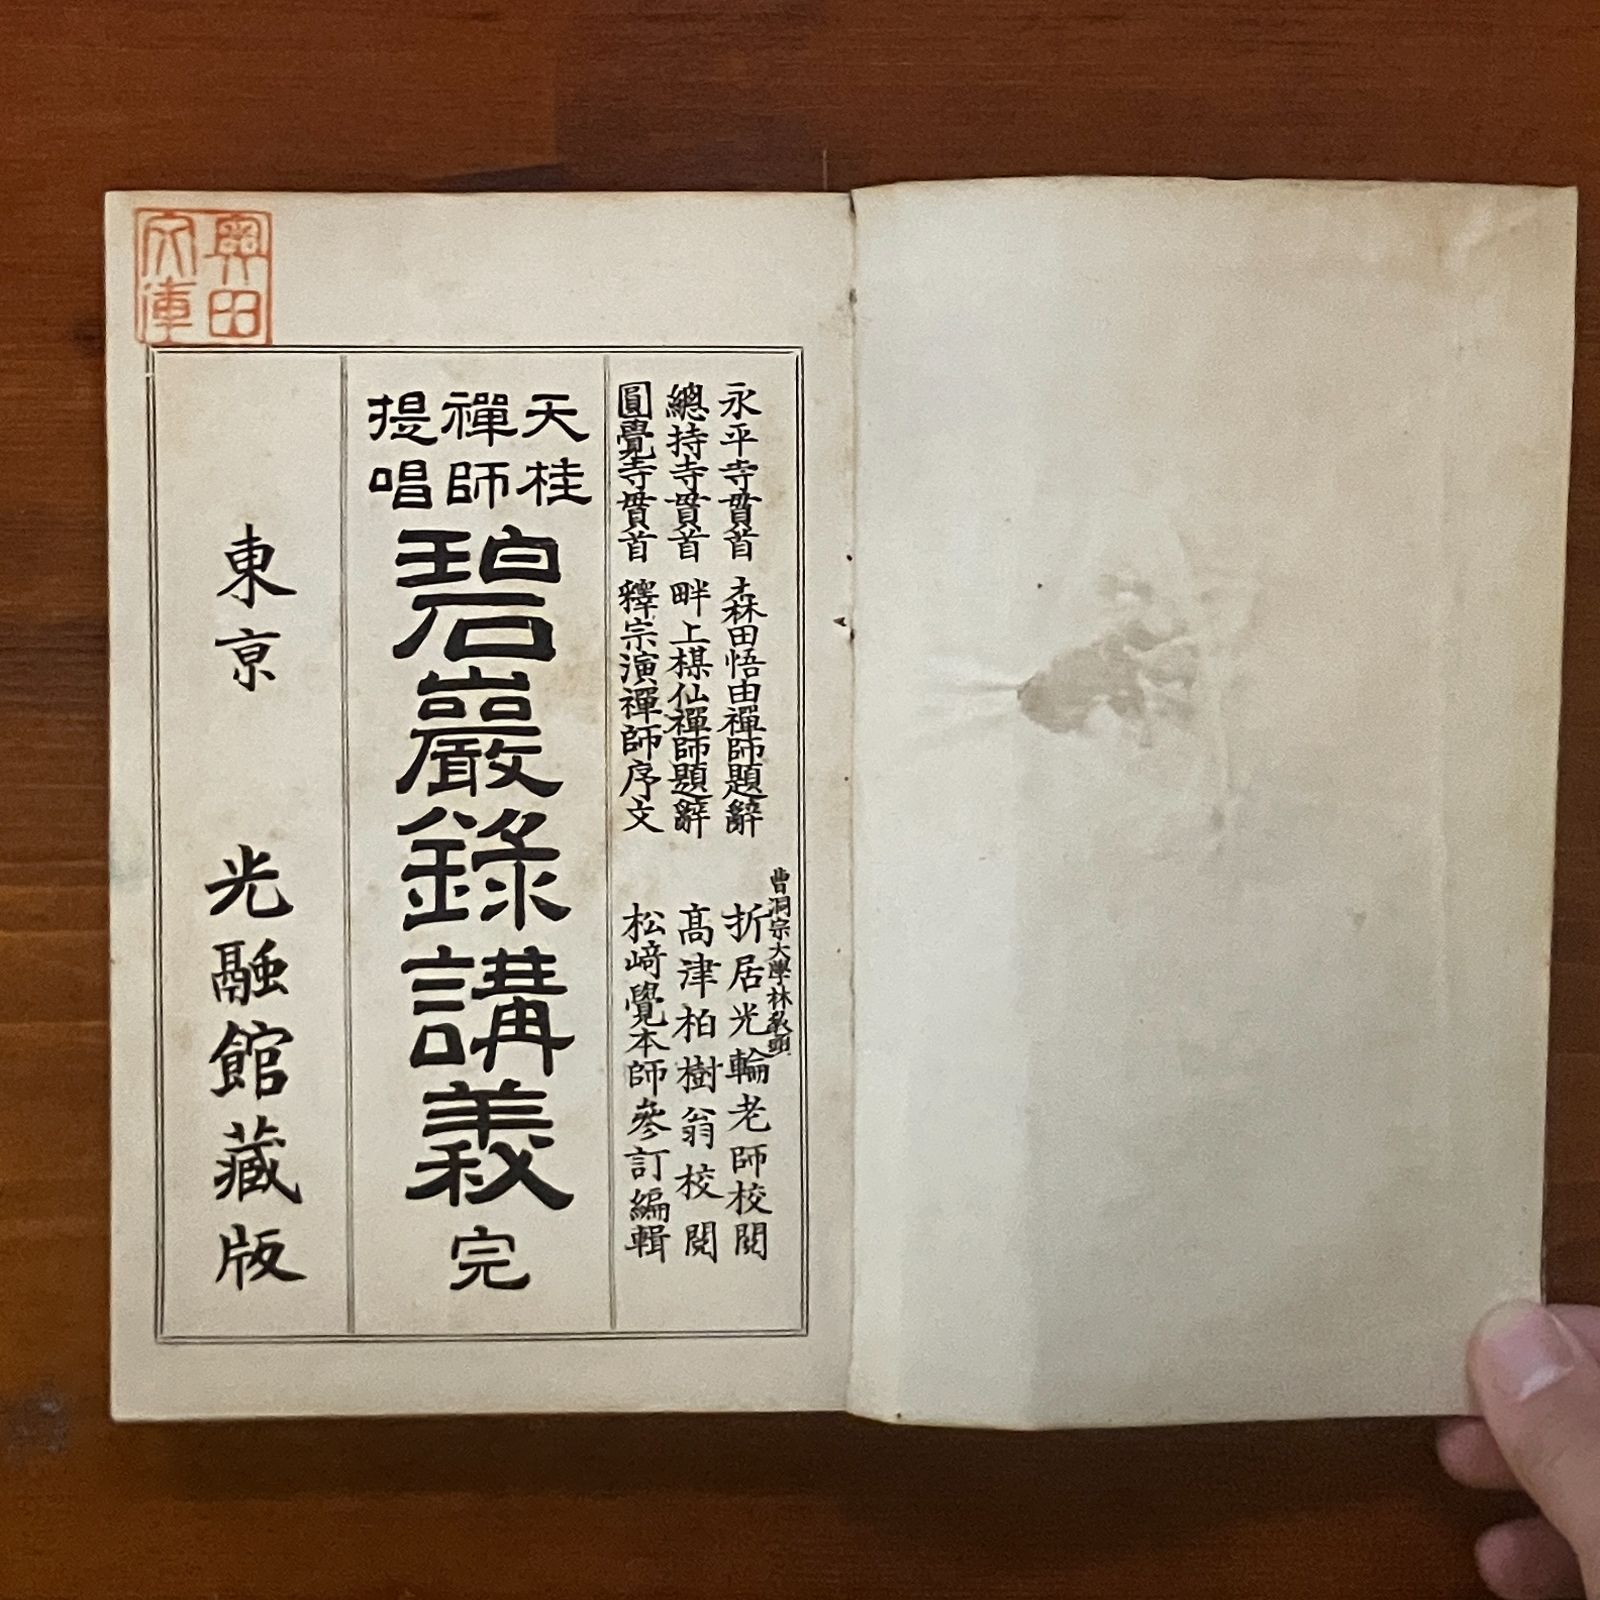 永平寺貫首 森田悟由禪師題辭
總持寺貫首 畔上楳仙禪師題辭
圓覺寺貫首 釋宗演禪師序文
曹洞宗大學林敎頭
折居光輪老師校閱
高津柏樹翁校閱
松﨑覺本師參訂編輯
天桂
禪師
提唱
碧巖錄講義 完
東京 光融館藏版
奧田
文庫